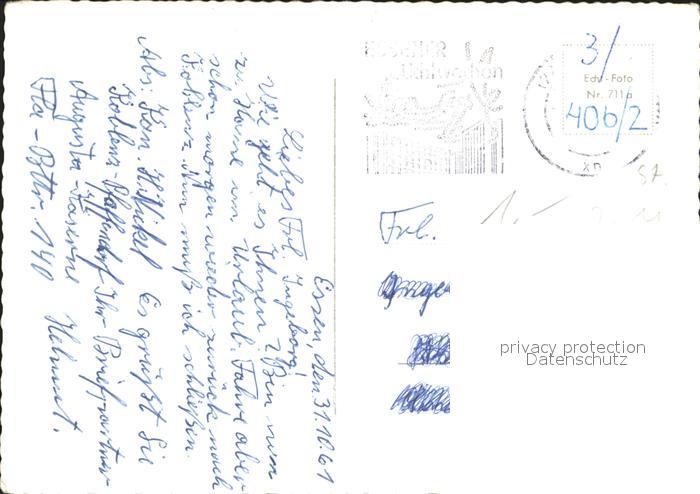 Essen, den 31.10.61
Liebes Frl. Ingeborg!
Wie geht es Ihnen? Bin nun
zu Hause im Urlaub. Fahre aber
schon morgen wieder zurück nach
Koblenz. Nun muß ich schließen.
Es grüßt Sie
Ihr Briefpartner
Helmut.
Abs: Kan. H. Nickel
Koblenz-Pfaffendorf
Augusta-Kaserne
Pa-Bttr. 140
ESSENER
Lichtwochen
3/
Edv-Foto
Nr. 711a
406/2
Frl.
privacy protection
Datenschutz